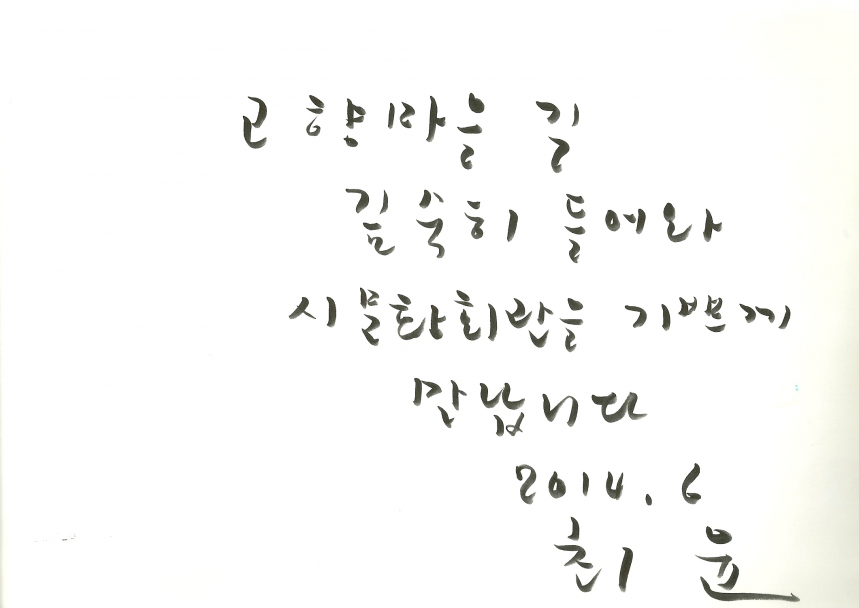 고향마을 길
깊숙히 들어와
시문화회관을 기쁘게
만납니다
2014. 6
최 윤